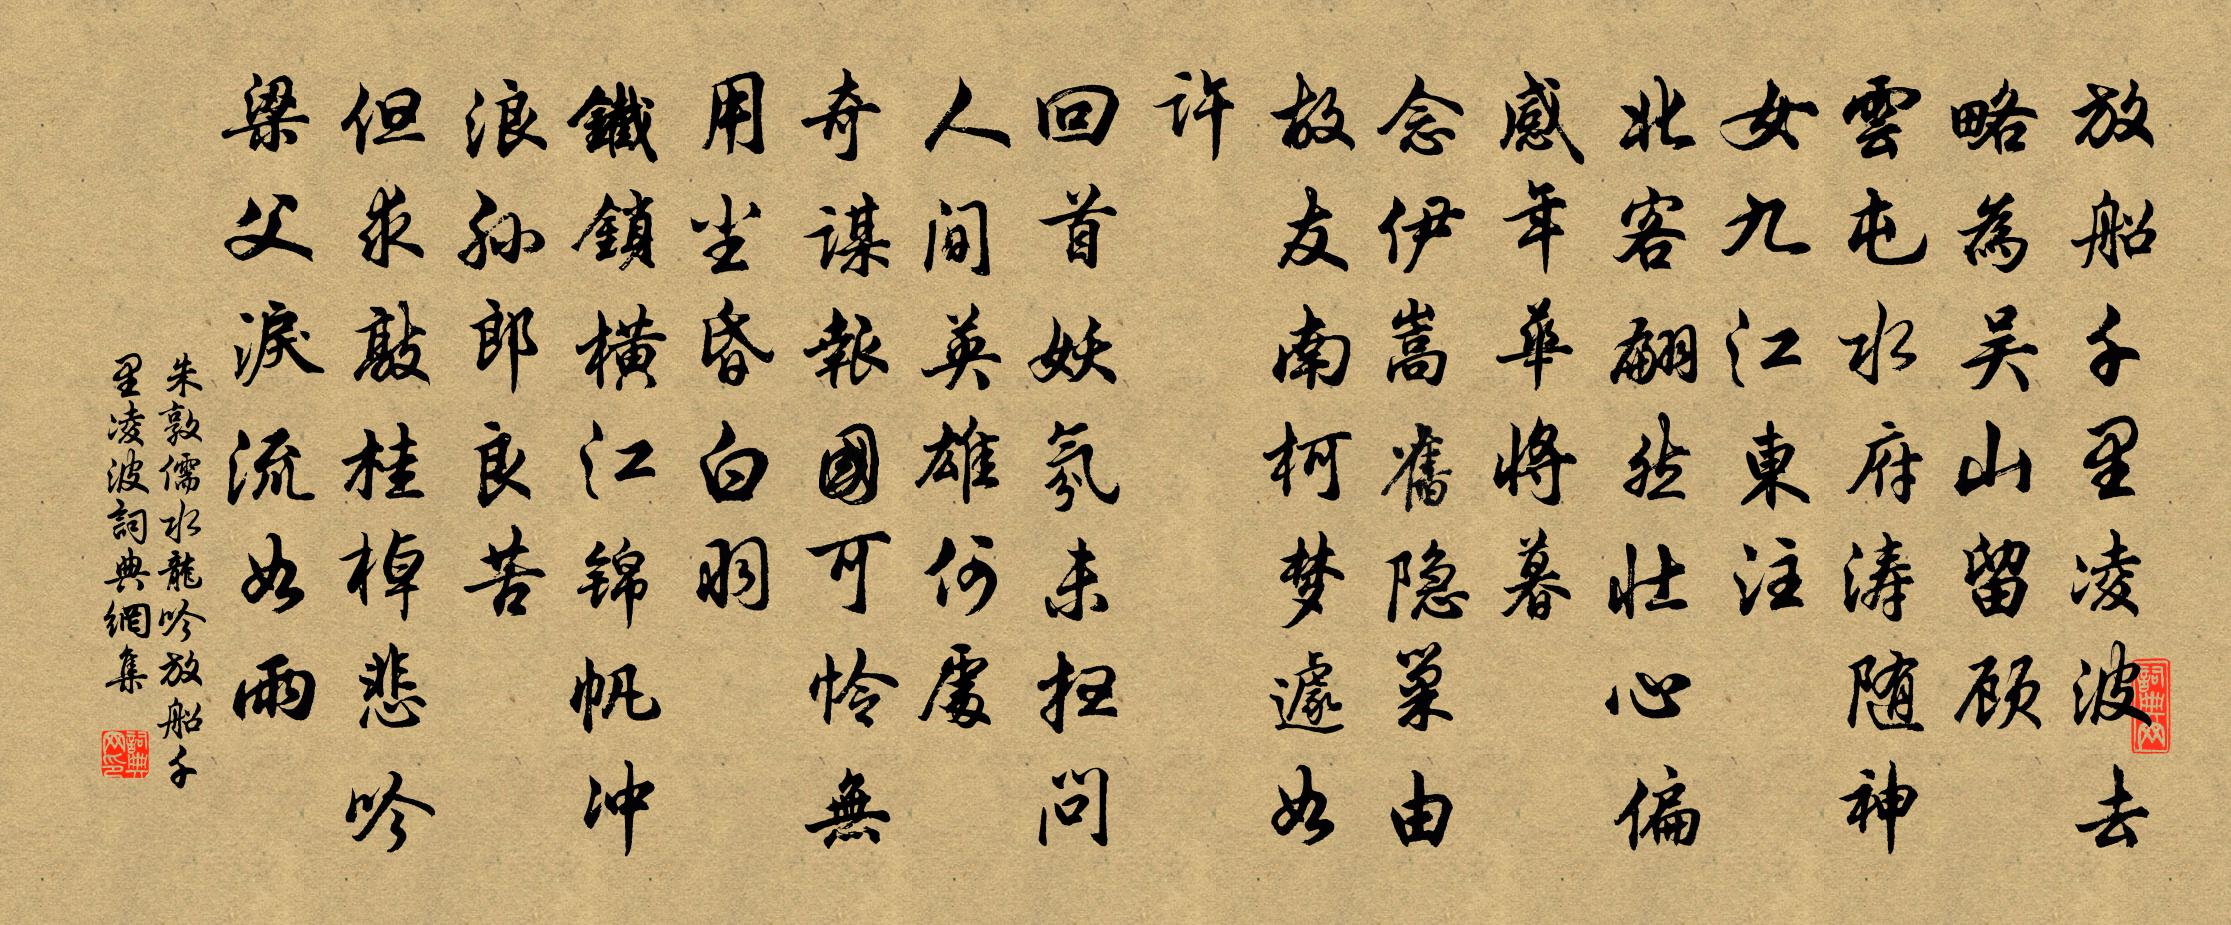 放船千里凌波去
略為吴山留顾
雲屯水府涛随神
女九江東注
北客翩然壮心偏
感年華将暮
念伊嵩舊隐巢由
故友南柯梦遽如
许
回首妖氛未扫问
人间英雄何處
奇谋報國可怜無
用尘昏白羽
鐵鎖横江锦帆冲
浪孙郎良苦
但求敲桂棹悲吟
梁父淚流如雨
朱敦儒水龍吟放船千
里凌波詞典網集
詞典网
詞典网印